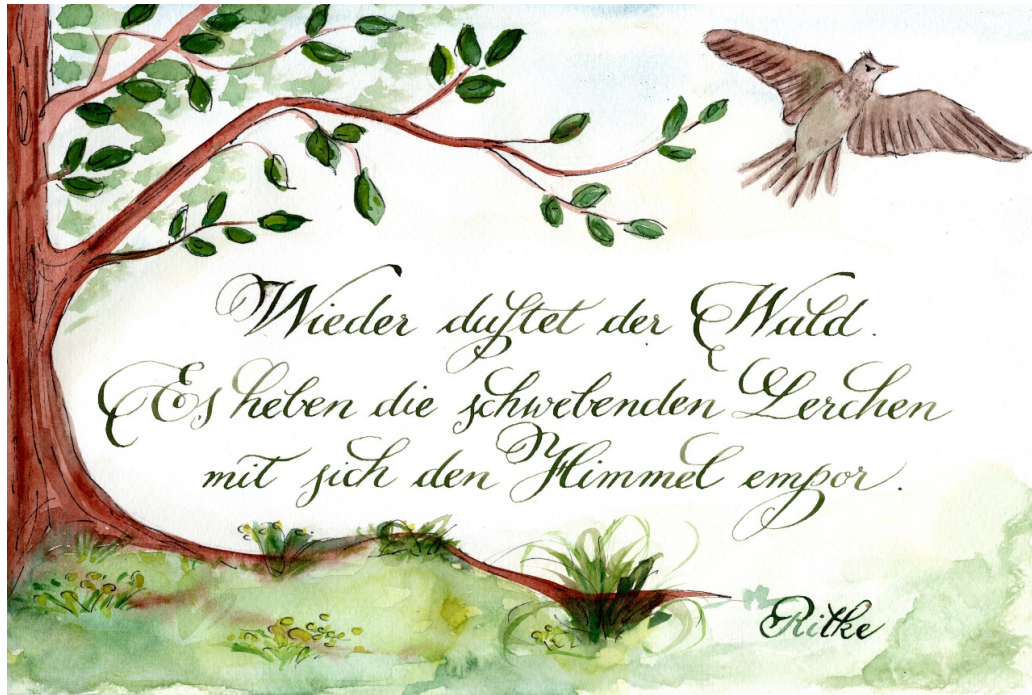 Wieder duftet der Wald.
Es heben die schwebenden Lerchen
mit sich den Himmel empor.
Rilke